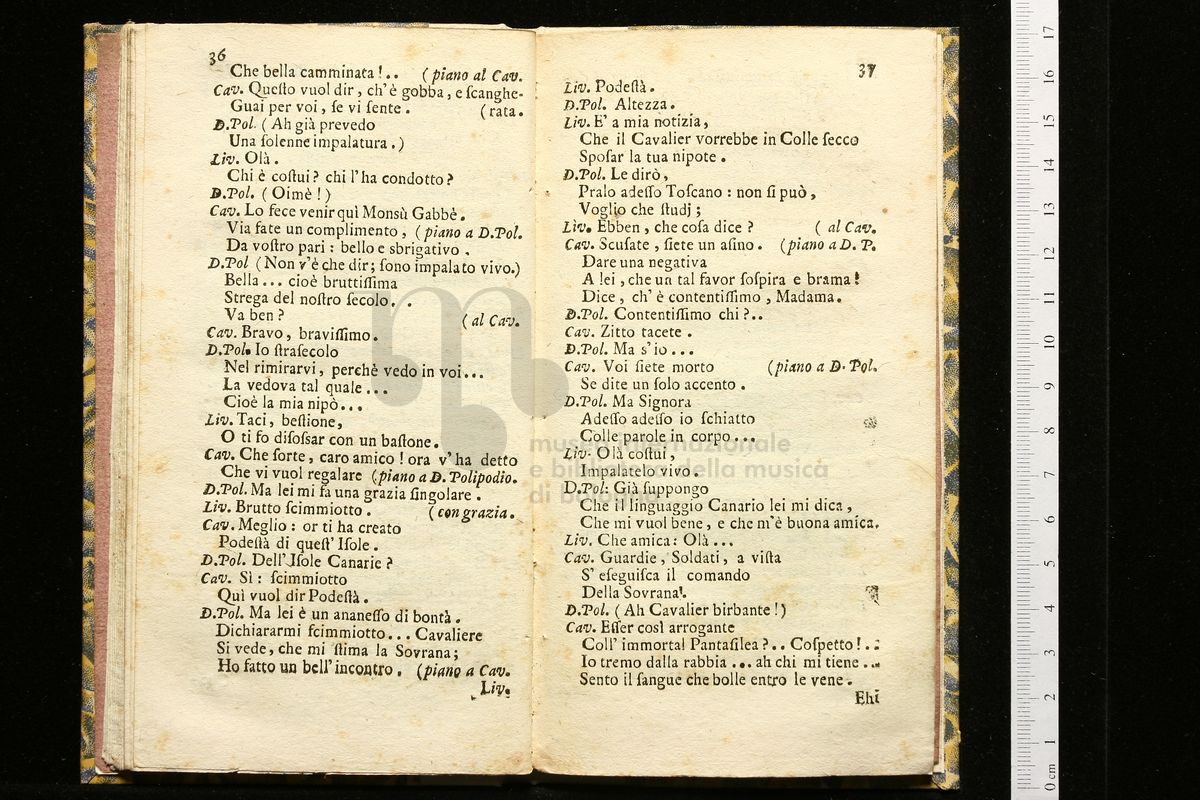 36
Che bella camminata!.. (piano al Cav.
Cav. Queſto vuol dir, ch'è gobba, e ſcanghe-
Guai per voi, ſe vi ſente. (rata.
D.Pol. (Ah già prevedo
Una ſolenne impalatura.)
Liv. Olà.
Chi è coſtui? chi l'ha condotto?
D.Pol. (Oimè!)
Cav. Lo fece venir quì Monsù Gabbè.
Via fate un complimento, (piano a D.Pol.
Da voſtro pari: bello e sbrigativo.
D.Pol (Non v'è che dir; ſono impalato vivo.)
Bella... cioè bruttiſſima
Strega del noſtro ſecolo. .
Va ben? (al Cav.
Cav. Bravo, braviſſimo.
D.Pol. Io ſtraſecolo
Nel rimirarvi, perchè vedo in voi...
La vedova tal quale...
Cioè la mia nipò...
Liv. Taci, beſtione,
O ti fo diſoſsar con un baſtone.
Cav. Che ſorte, caro amico! ora v'ha detto
Che vi vuol regalare (piano a D. Polipodio.
D.Pol. Ma lei mi fa una grazia ſingolare.
Liv. Brutto ſcimmiotto. (con grazia.
Cav. Meglio: or ti ha creato
Podeſtà di queſt' Iſole.
D.Pol. Dell' Iſole Canarie?
Cav. Sì: ſcimmiotto
Quì vuol dir Podeſtà.
D.Pol. Ma lei è un ananeſſo di bontà.
Dichiararmi ſcimmiotto... Cavaliere
Si vede, che mi ſtima la Sovrana;
Ho fatto un bell'incontro. (piano a Cav.
Liv.
37
Liv. Podeſtà.
D.Pol. Altezza.
Liv. E' a mia notizia,
Che il Cavalier vorrebbe in Colle ſecco
Spoſar la tua nipote.
D.Pol. Le dirò,
Pralo adeſſo Toſcano: non ſi può,
Voglio che ſtudj;
Liv. Ebben, che coſa dice? (al Cav.
Cav. Scuſate, ſiete un aſino. (piano a D. P.
Dare una negativa
A lei, che un tal favor ſoſpira e brama!
Dice, ch' è contentiſſimo, Madama.
D.Pol. Contentiſſimo chi?..
Cav. Zitto tacete.
D.Pol. Ma s'io...
Cav. Voi ſiete morto (piano a D. Pol.
Se dite un ſolo accento.
D.Pol. Ma Signora
Adeſſo adeſſo io ſchiatto
Colle parole in corpo...
Liv. Olà coſtui,
Impalatelo vivo.
D.Pol. Già ſuppongo
Che il linguaggio Canario lei mi dica,
Che mi vuol bene, e che m'è buona amica.
Liv. Che amica: Olà...
Cav. Guardie, Soldati, a viſta
S' eſeguiſca il comando
Della Sovrana.
D.Pol. (Ah Cavalier birbante!)
Cav. Eſſer così arrogante
Coll' immortal Pantaſilea?.. Coſpetto!..
Io tremo dalla rabbia... ah chi mi tiene...
Sento il ſangue che bolle entro le vene.
Ehi